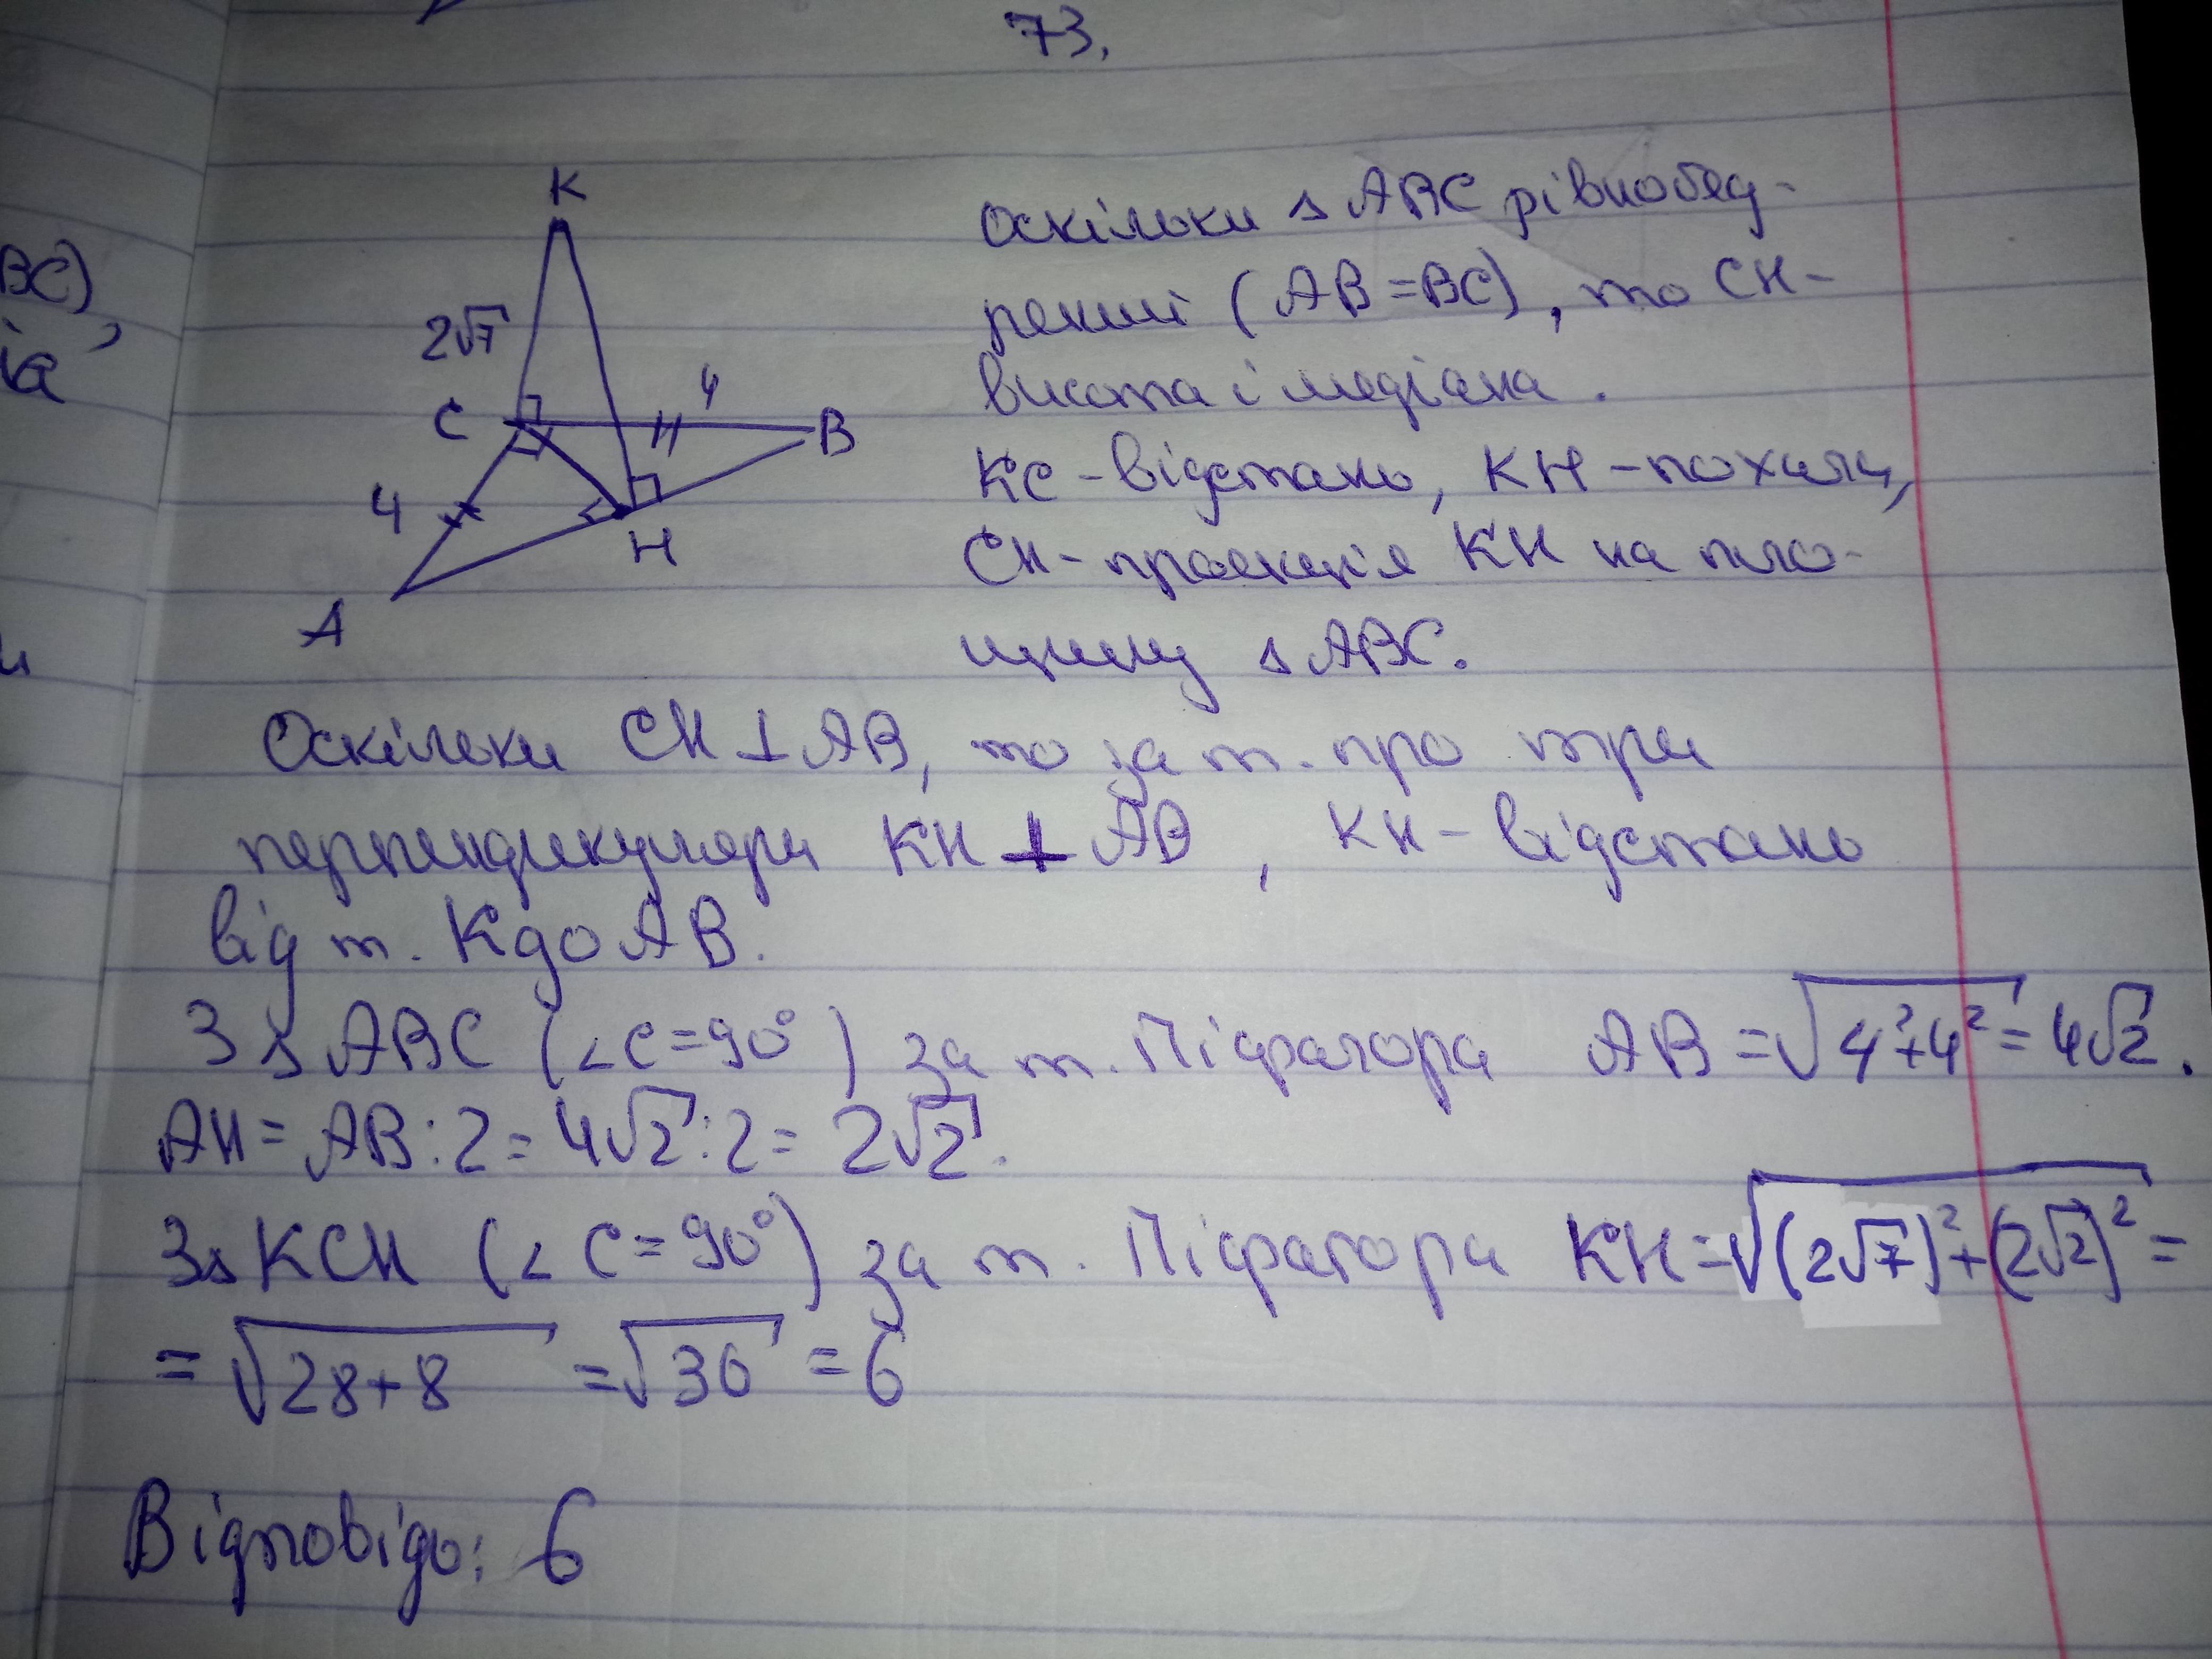 73.
K
2√7
C
4
B
4
H
A
Оскільки △ ABC рівнобед-
рений (AB=BC), то CH-
висота і медіана.
KC-відстань, KH-похила,
CH-проекція KH на пло-
щину △ ABC.
Оскільки CH⊥AB, то за т. про три
перпендикуляри KH ⊥ AB, KH-відстань
від т. K до AB.
З △ ABC (∠C=90°) за т. Піфагора AB=√4²+4²=4√2.
AH=AB:2=4√2:2=2√2.
З△KCH (∠C=90°) за т. Піфагора KH=√(2√7)²+(2√2)²=
=√28+8=√36=6
Відповідь: 6
BC),